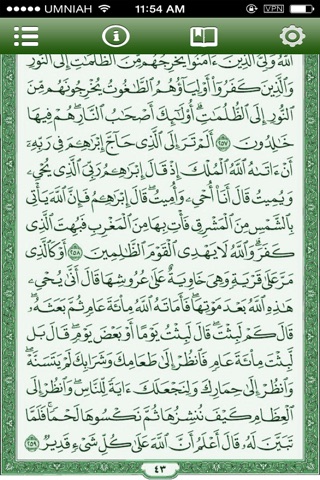 UMNIAH 11:54 AM VPN
ٱللَّهُ وَلِىُّ ٱلَّذِينَ ءَامَنُوا۟ يُخْرِجُهُم مِّنَ ٱلظُّلُمَـٰتِ إِلَى ٱلنُّورِ
وَٱلَّذِينَ كَفَرُوٓا۟ أَوْلِيَآؤُهُمُ ٱلطَّـٰغُوتُ يُخْرِجُونَهُم مِّنَ
ٱلنُّورِ إِلَى ٱلظُّلُمَـٰتِ ۗ أُو۟لَـٰٓئِكَ أَصْحَـٰبُ ٱلنَّارِ ۖ هُمْ فِيهَا
خَـٰلِدُونَ ٢٥٧ أَلَمْ تَرَ إِلَى ٱلَّذِى حَآجَّ إِبْرَٰهِـۧمَ فِى رَبِّهِۦٓ
أَنْ ءَاتَىٰهُ ٱللَّهُ ٱلْمُلْكَ إِذْ قَالَ إِبْرَٰهِـۧمُ رَبِّىَ ٱلَّذِى يُحْىِۦ
وَيُمِيتُ قَالَ أَنَا۠ أُحْىِۦ وَأُمِيتُ ۖ قَالَ إِبْرَٰهِـۧمُ فَإِنَّ ٱللَّهَ يَأْتِى
بِٱلشَّمْسِ مِنَ ٱلْمَشْرِقِ فَأْتِ بِهَا مِنَ ٱلْمَغْرِبِ فَبُهِتَ ٱلَّذِى
كَفَرَ ۗ وَٱللَّهُ لَا يَهْدِى ٱلْقَوْمَ ٱلظَّـٰلِمِينَ ٢٥٨ أَوْ كَٱلَّذِى
مَرَّ عَلَىٰ قَرْيَةٍ وَهِىَ خَاوِيَةٌ عَلَىٰ عُرُوشِهَا قَالَ أَنَّىٰ يُحْىِۦ
هَـٰذِهِ ٱللَّهُ بَعْدَ مَوْتِهَا ۖ فَأَمَاتَهُ ٱللَّهُ مِا۟ئَةَ عَامٍ ثُمَّ بَعَثَهُۥ ۖ
قَالَ كَمْ لَبِثْتَ ۖ قَالَ لَبِثْتُ يَوْمًا أَوْ بَعْضَ يَوْمٍ ۖ قَالَ بَل
لَّبِثْتَ مِا۟ئَةَ عَامٍ فَٱنظُرْ إِلَىٰ طَعَامِكَ وَشَرَابِكَ لَمْ يَتَسَنَّهْ ۖ
وَٱنظُرْ إِلَىٰ حِمَارِكَ وَلِنَجْعَلَكَ ءَايَةً لِّلنَّاسِ ۖ وَٱنظُرْ إِلَى
ٱلْعِظَامِ كَيْفَ نُنشِزُهَا ثُمَّ نَكْسُوهَا لَحْمًا ۚ فَلَمَّا
تَبَيَّنَ لَهُۥ قَالَ أَعْلَمُ أَنَّ ٱللَّهَ عَلَىٰ كُلِّ شَىْءٍ قَدِيرٌ ٢٥٩
٤٣